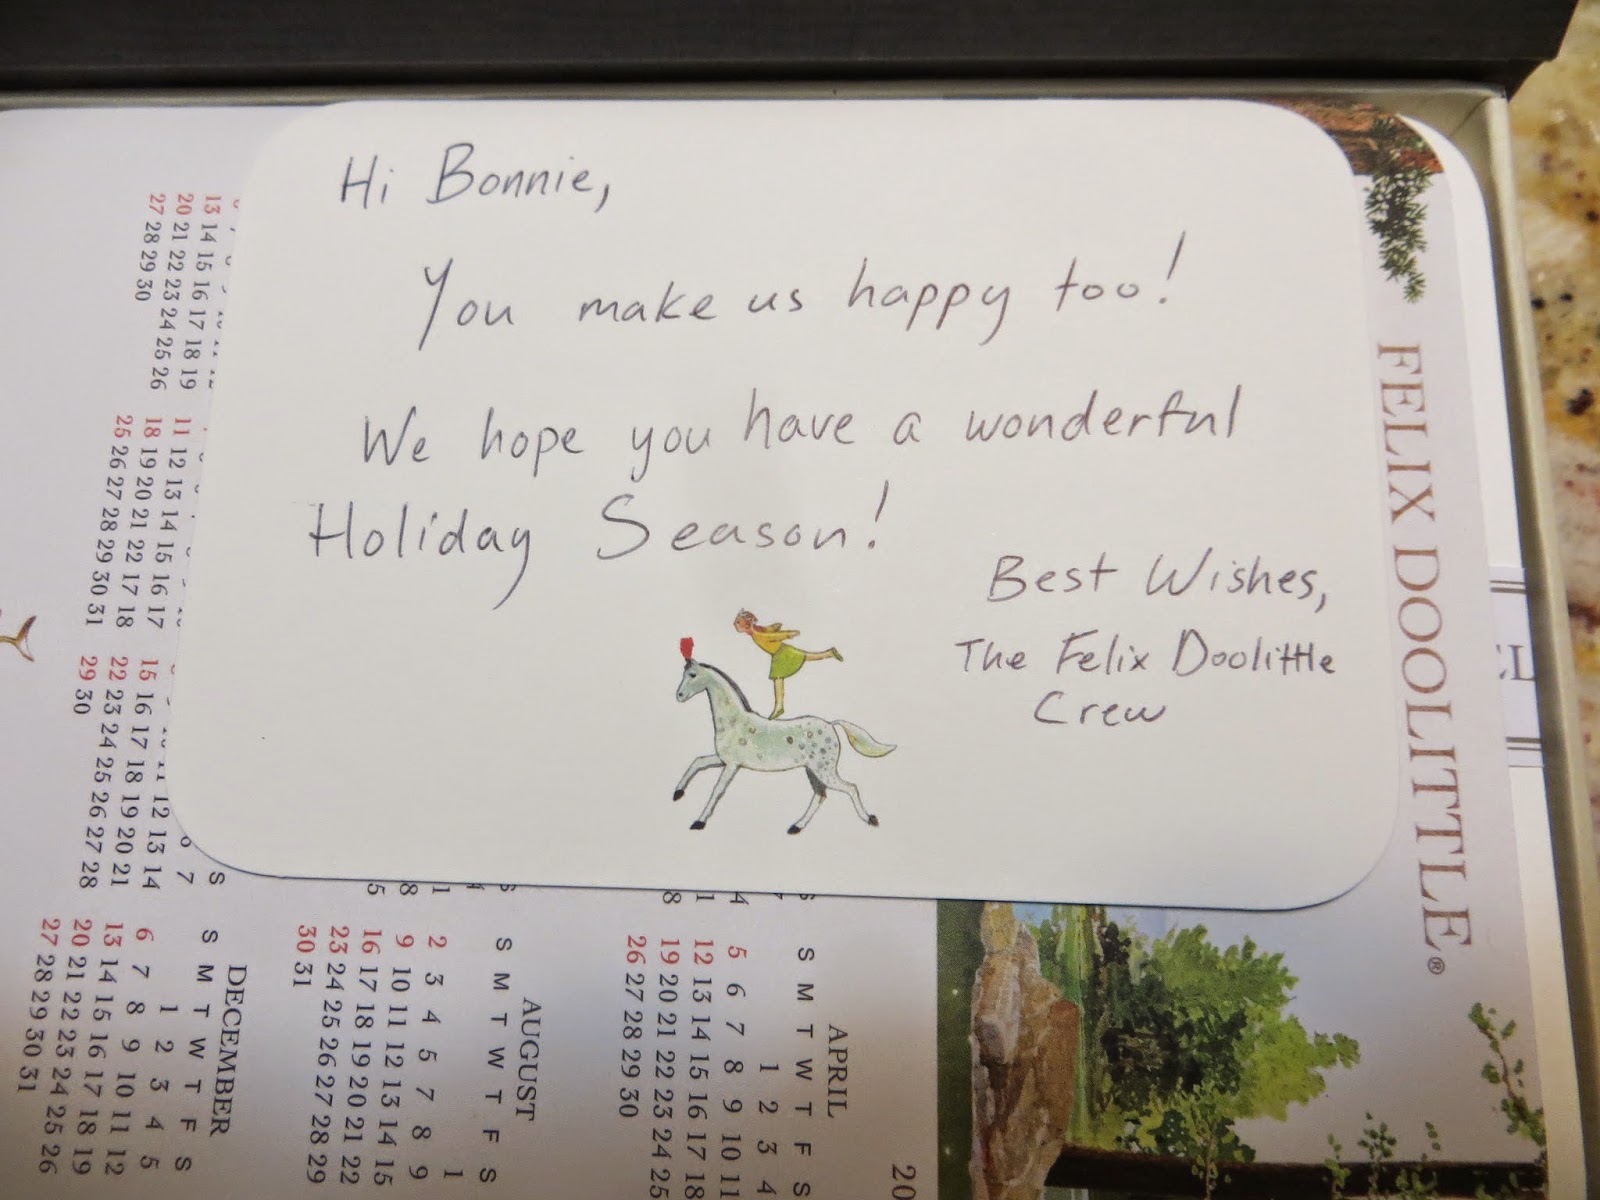 Hi Bonnie,
You make us happy too!
We hope you have a wonderful
Holiday Season!
Best Wishes,
The Felix Doolittle
Crew
FELIX DOOLITTLE®
20
APRIL
S M T W T F S
1 2 3 4
5 6 7 8 9 10 11
12 13 14 15 16 17 18
19 20 21 22 23 24 25
26 27 28 29 30
AUGUST
S M T W T F S
1
2 3 4 5 6 7 8
9 10 11 12 13 14 15
16 17 18 19 20 21 22
23 24 25 26 27 28 29
30 31
DECEMBER
S M T W T F S
1 2 3 4 5
6 7 8 9 10 11 12
13 14 15 16 17 18 19
20 21 22 23 24 25 26
27 28 29 30 31
13 14 15 16 17 18 19
20 21 22 23 24 25 26
27 28 29 30
11 12 13 14 15 16 17
18 19 20 21 22 17 18
25 26 27 28 29 30 31
15 16 17 18 19 20 21
22 23 24 25 26 27 28
29 30